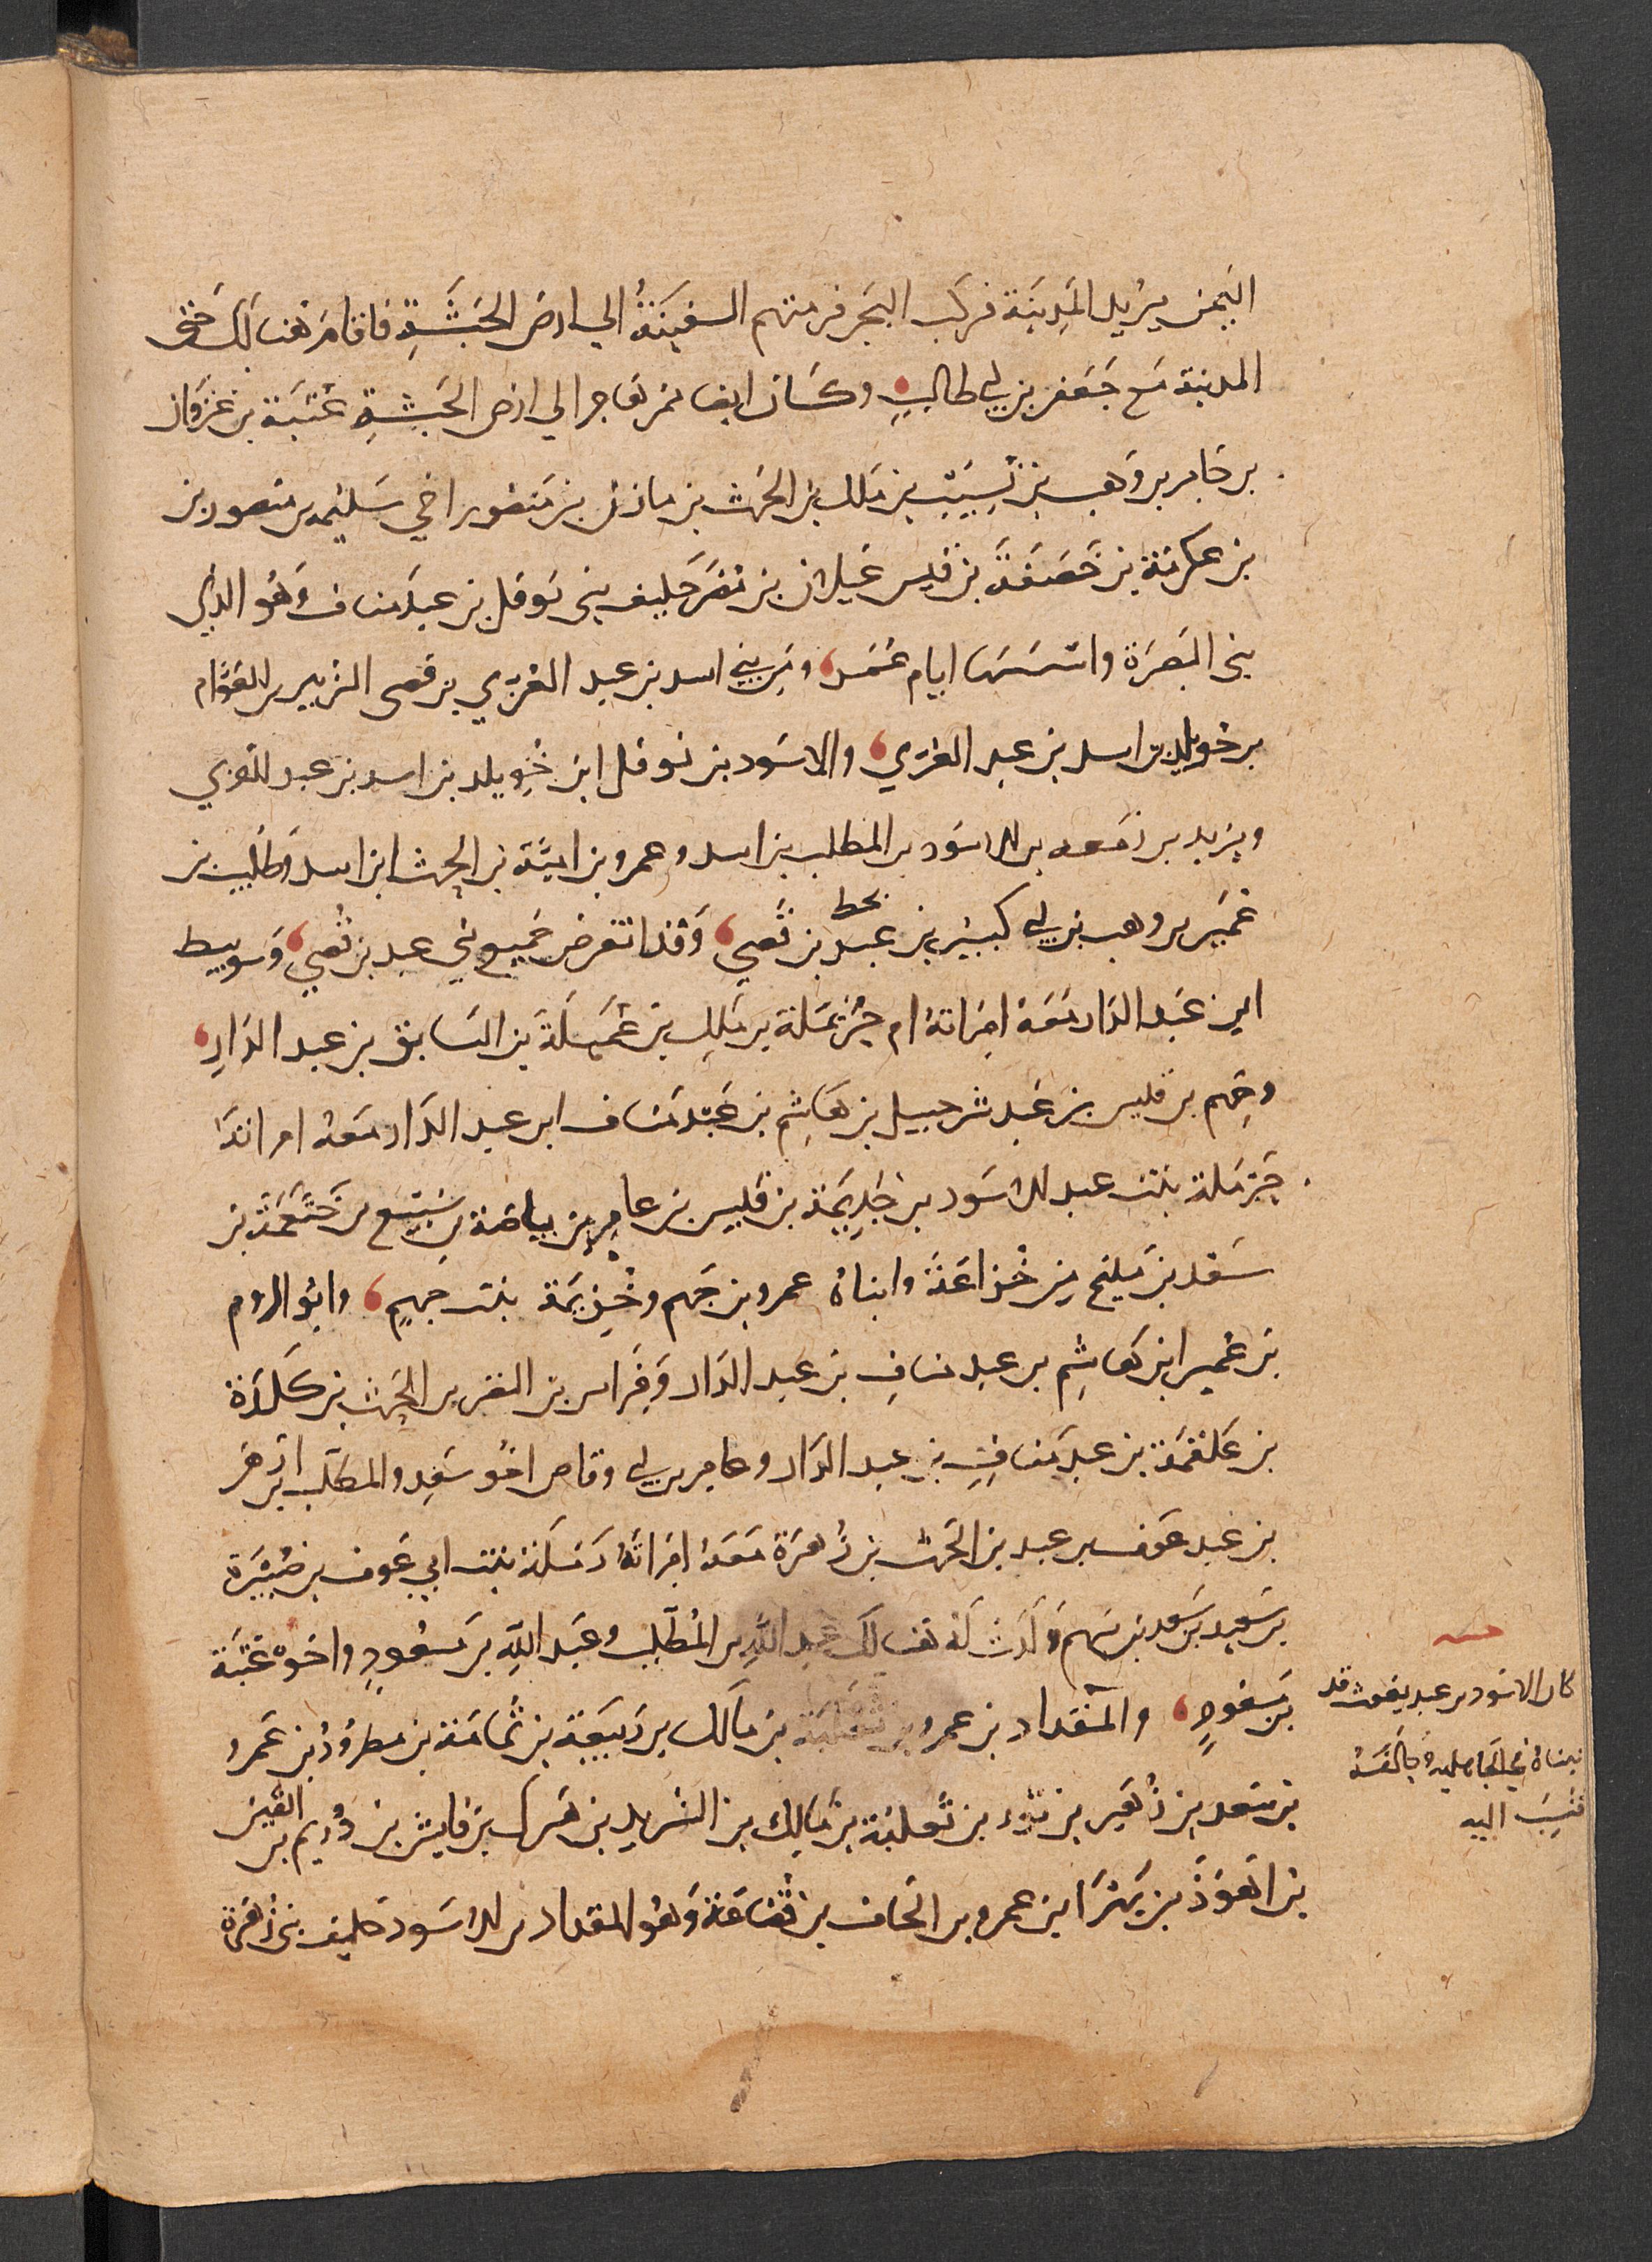 اليمن يريد المدينة فركب البحر فرمتهم السفينة الي ارض الحبشة فاقام هنالك حتى
المدينة مع جعفر بن ابي طالب وكان ايضا ممن هاجر الي ارض الحبشة عتبة بن غزوان
بن جابر بن وهب بن نسيب بن ملك بن الحرث بن مازن بن منصور اخي سليم بن منصور بن
بن عكرمة بن خصفة بن قيس عيلان بن مضر حليف بني نوفل بن عبد مناف وهو الذي
بني البصرة واسسها ايام عمر ومن بني اسد بن عبد العزي بن قصي الزبير بن العوام
بن خويلد بن اسد بن عبد العزي والاسود بن نوفل ابن خويلد بن اسد بن عبد العزي
ويزيد بن زمعه بن الاسود بن المطلب بن اسد وعمرو بن امية بن الحرث ابن اسد وطليب بن
عمير بن وهب بن ابي كبير بن عبد بن قصي وقد انقرض جميع بني عبد بن قصي وسويبط
ابن عبد الدار معه امراته ام حرملة بن ملك بن عميلة بن السابق بن عبد الدار
وجهم بن قيس بن عبد شرحبيل بن هاشم بن عبد مناف ابن عبد الدار معه امراته
حرملة بنت عبد الاسود بن جذيمة بن قيس بن عامر بن بياضة بن سبيع بن خثعمة بن
سعد بن مليح من خزاعة وابناه عمرو بن جهم وخزيمة بنت جهم وابو الروم
بن عمير ابن هاشم بن عبد مناف بن عبد الدار وفراس بن النضر بن الحرث بن كلدة
بن علقمة بن عبد مناف بن عبد الدار وعامر بن ابي وقاص اخو سعد والمطلب بن ازهر
بن عبد عوف بن عبد بن الحرث بن زهرة معه امراته رملة بنت ابي عوف بن صبيرة
بن سعيد بن سعد بن سهم ولدت له هنالك عبد الله بن المطلب وعبد الله بن مسعود واخوه عتبة
بن مسعود والمقداد بن عمرو بن ثعلبة بن مالك بن ربيعة بن ثمامة بن مطرود بن عمرو
بن سعد بن زهير بن ثور بن ثعلبة بن مالك بن الشريد بن هزل بن فايش بن دريم بن القين
بن اهوذ بن بهرا بن عمرو بن الحاف بن قضاعة وهو المقداد بن الاسود حليف بني زهرة
كان الاسود بن عبد يغوث قد
تبناه في الجاهلية وحالفه
فنسب اليه